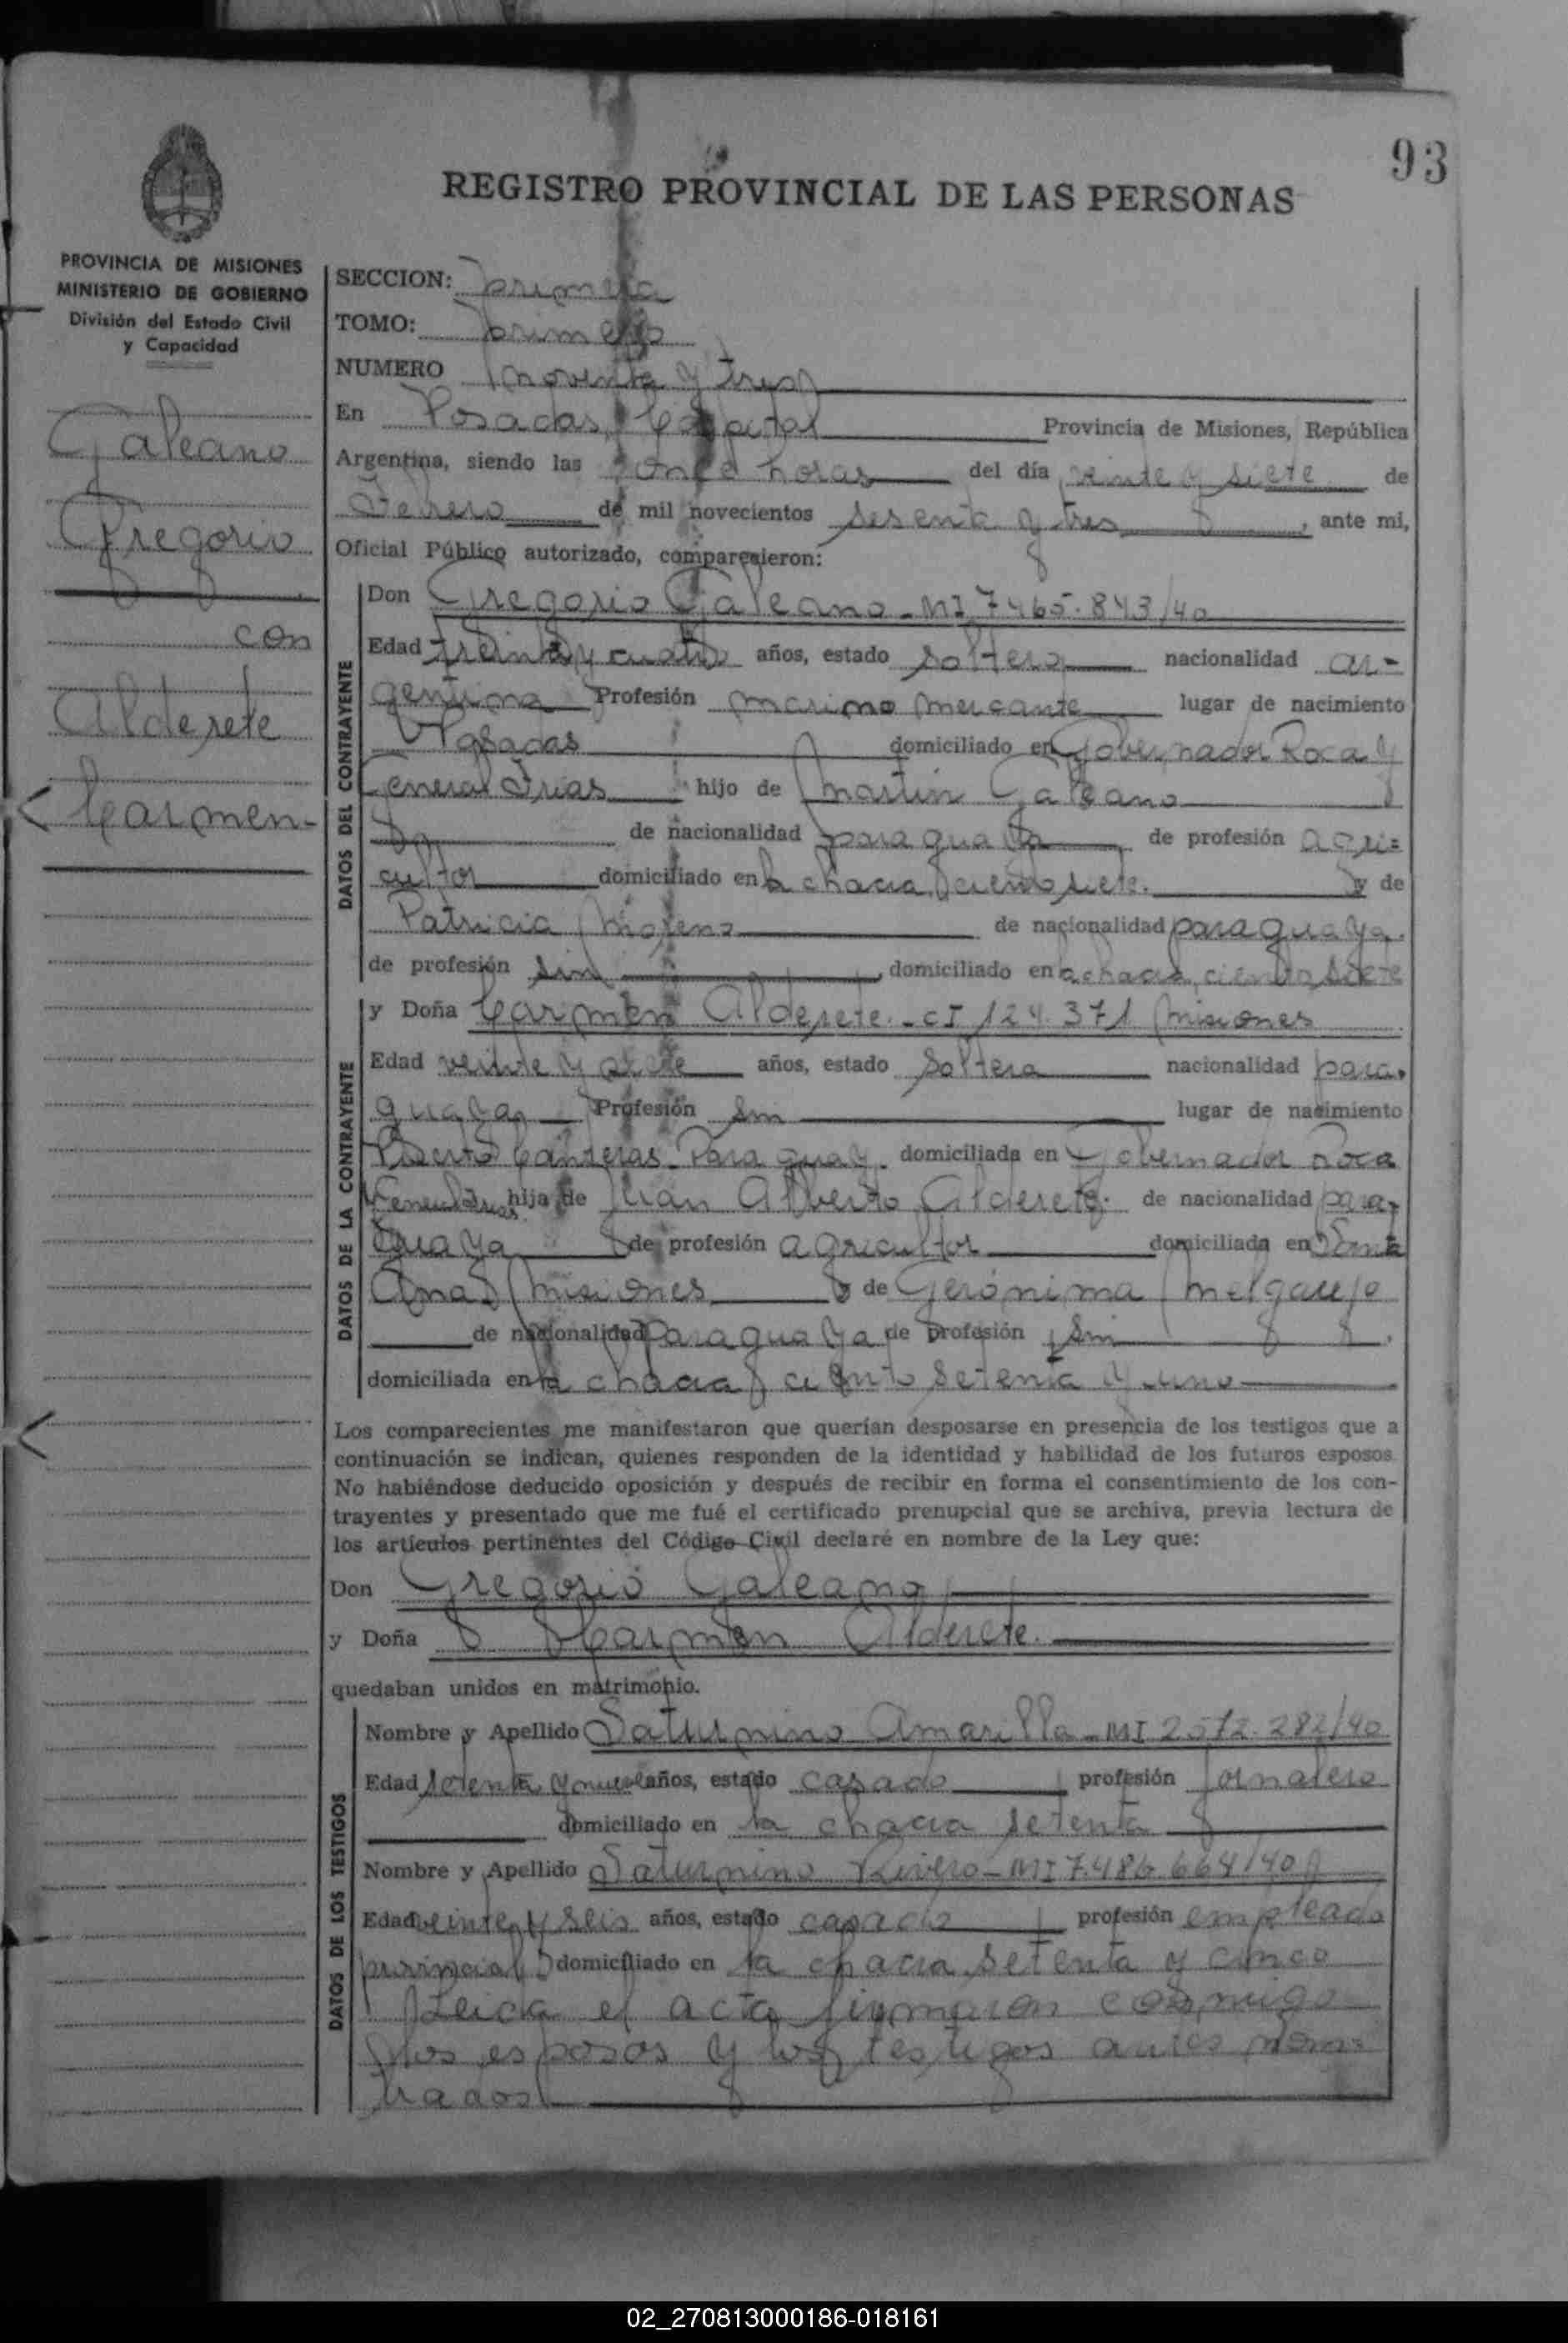 93
REGISTRO PROVINCIAL DE LAS PERSONAS
PROVINCIA DE MISIONES
MINISTERIO DE GOBIERNO
División del Estado Civil
y Capacidad
Galeano
Gregorio
con
Alderete
Carmen-
SECCION: primera
TOMO: primero
NUMERO noventa y tres
En Posadas, Capital Provincia de Misiones, República
Argentina, siendo las once horas del día veinte y siete de
Febrero de mil novecientos sesenta y tres, ante mi,
Oficial Público autorizado, comparecieron:
DATOS DEL CONTRAYENTE
Don Gregorio Galeano - MI 7465.843/40
Edad treinta y cuatro años, estado soltero nacionalidad ar-
gentina Profesión marino mercante lugar de nacimiento
Posadas domiciliado en Gobernador Roca y
General Frias hijo de Martin Galeano
de nacionalidad paraguaya de profesión agri=
cultor domiciliado en la chacra ciento siete. y de
Patricia Moreno de nacionalidad paraguaya.
de profesión sin, domiciliado en la chacra ciento siete
DATOS DE LA CONTRAYENTE
y Doña Carmen Alderete. - CI 124.371 Misiones
Edad veinte y siete años, estado soltera nacionalidad para.
guaya Profesión sin lugar de nacimiento
Puerto Canteras - Paraguay. domiciliada en Gobernador Roca
y General Frias hija de Juan Alberto Alderete. de nacionalidad para-
guaya de profesión agricultor domiciliada en Santa
Ana Misiones y de Gerónima Melgarejo
de nacionalidad paraguaya de profesión sin
domiciliada en la chacra ciento setenta y uno
Los comparecientes me manifestaron que querían desposarse en presencia de los testigos que a
continuación se indican, quienes responden de la identidad y habilidad de los futuros esposos.
No habiéndose deducido oposición y después de recibir en forma el consentimiento de los con-
trayentes y presentado que me fué el certificado prenupcial que se archiva, previa lectura de
los artículos pertinentes del Código Civil declaré en nombre de la Ley que:
Don Gregorio Galeano
y Doña Carmen Alderete.
quedaban unidos en matrimonio.
DATOS DE LOS TESTIGOS
Nombre y Apellido Saturnino Amarilla - MI 2572.282/40
Edad setenta y nueve años, estado casado profesión jornalero
domiciliado en la chacra setenta
Nombre y Apellido Saturnino Rivero - MI 7.486.664/40
Edad veinte y seis años, estado casado profesión empleado
provincial domiciliado en la chacra setenta y cinco
Leida el acta firmaron conmigo
los esposos y los testigos antes nom=
brados
02_270813000186-018161